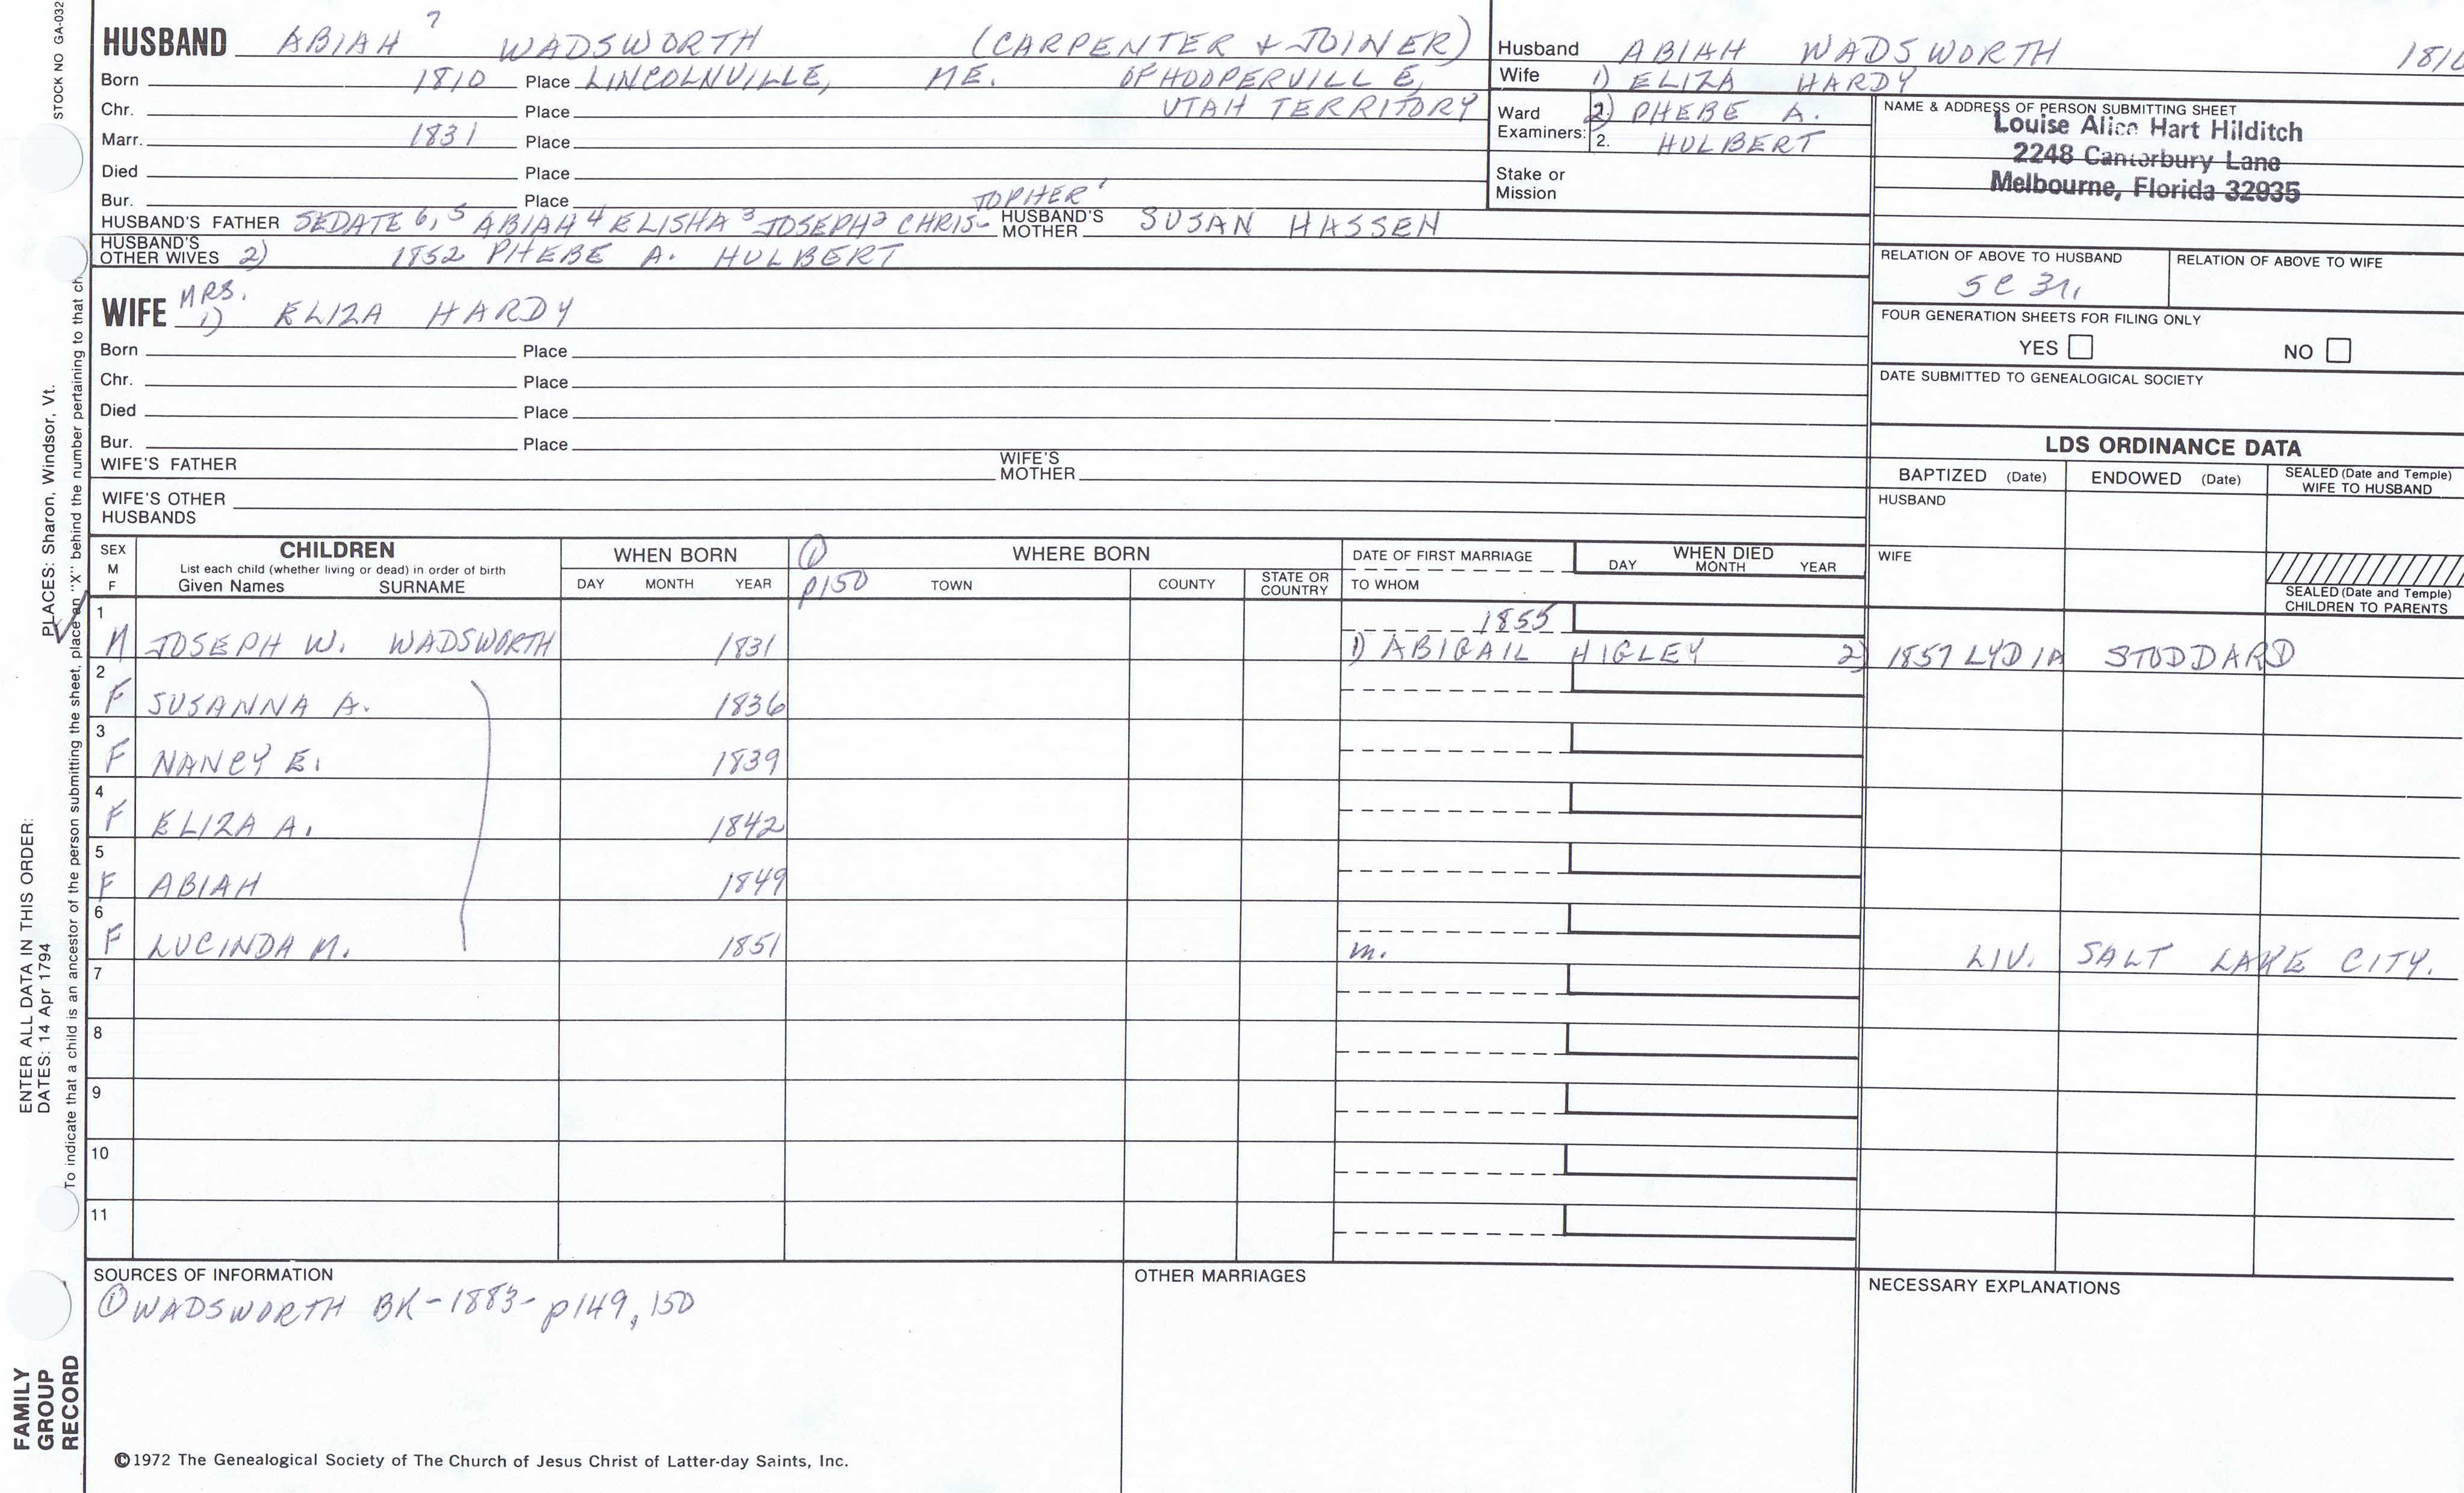 STOCK NO GA-032
HUSBAND ABIAH 7 WADSWORTH (CARPENTER + JOINER)
Born 1810 Place LINCOLNVILLE, ME. OF HOOPERVILLE,
Chr. Place UTAH TERRITORY
Marr. 1831 Place
Died Place
Bur. Place
HUSBAND'S FATHER SEDATE 6, 5 ABIAH 4 ELISHA 3 JOSEPH 2 CHRIS-TOPHER 1 HUSBAND'S MOTHER SUSAN HASSEN
HUSBAND'S OTHER WIVES 2) 1852 PHEBE A. HULBERT
WIFE MRS. 1) ELIZA HARDY
Born Place
Chr. Place
Died Place
Bur. Place
WIFE'S FATHER WIFE'S MOTHER
WIFE'S OTHER HUSBANDS
Husband ABIAH WADSWORTH 1810
Wife 1) ELIZA HARDY
Ward Examiners: 2) PHEBE A.
2. HULBERT
Stake or Mission
NAME & ADDRESS OF PERSON SUBMITTING SHEET
Louise Alice Hart Hilditch
2248 Canterbury Lane
Melbourne, Florida 32935
RELATION OF ABOVE TO HUSBAND RELATION OF ABOVE TO WIFE
5C 3r.
FOUR GENERATION SHEETS FOR FILING ONLY
YES NO
DATE SUBMITTED TO GENEALOGICAL SOCIETY
LDS ORDINANCE DATA
BAPTIZED (Date) ENDOWED (Date) SEALED (Date and Temple) WIFE TO HUSBAND
HUSBAND
WIFE
SEALED (Date and Temple) CHILDREN TO PARENTS
SEX M F
CHILDREN
List each child (whether living or dead) in order of birth
Given Names SURNAME
WHEN BORN
DAY MONTH YEAR
① p150
WHERE BORN
TOWN COUNTY STATE OR COUNTRY
DATE OF FIRST MARRIAGE
TO WHOM
WHEN DIED
DAY MONTH YEAR
1 M JOSEPH W. WADSWORTH 1831 1855 1) ABIGAIL HIGLEY 2) 1857 LYDIA STODDARD
2 F SUSANNA A. 1836
3 F NANCY E. 1839
4 F ELIZA A. 1842
5 F ABIAH 1849
6 F LUCINDA M. 1851 m. LIV. SALT LAKE CITY.
7
8
9
10
11
SOURCES OF INFORMATION
① WADSWORTH BK-1883-p149, 150
OTHER MARRIAGES
NECESSARY EXPLANATIONS
©1972 The Genealogical Society of The Church of Jesus Christ of Latter-day Saints, Inc.
FAMILY
GROUP
RECORD
ENTER ALL DATA IN THIS ORDER:
DATES: 14 Apr 1794 PLACES: Sharon, Windsor, Vt.
To indicate that a child is an ancestor of the person submitting the sheet, place an "X" behind the number pertaining to that ch